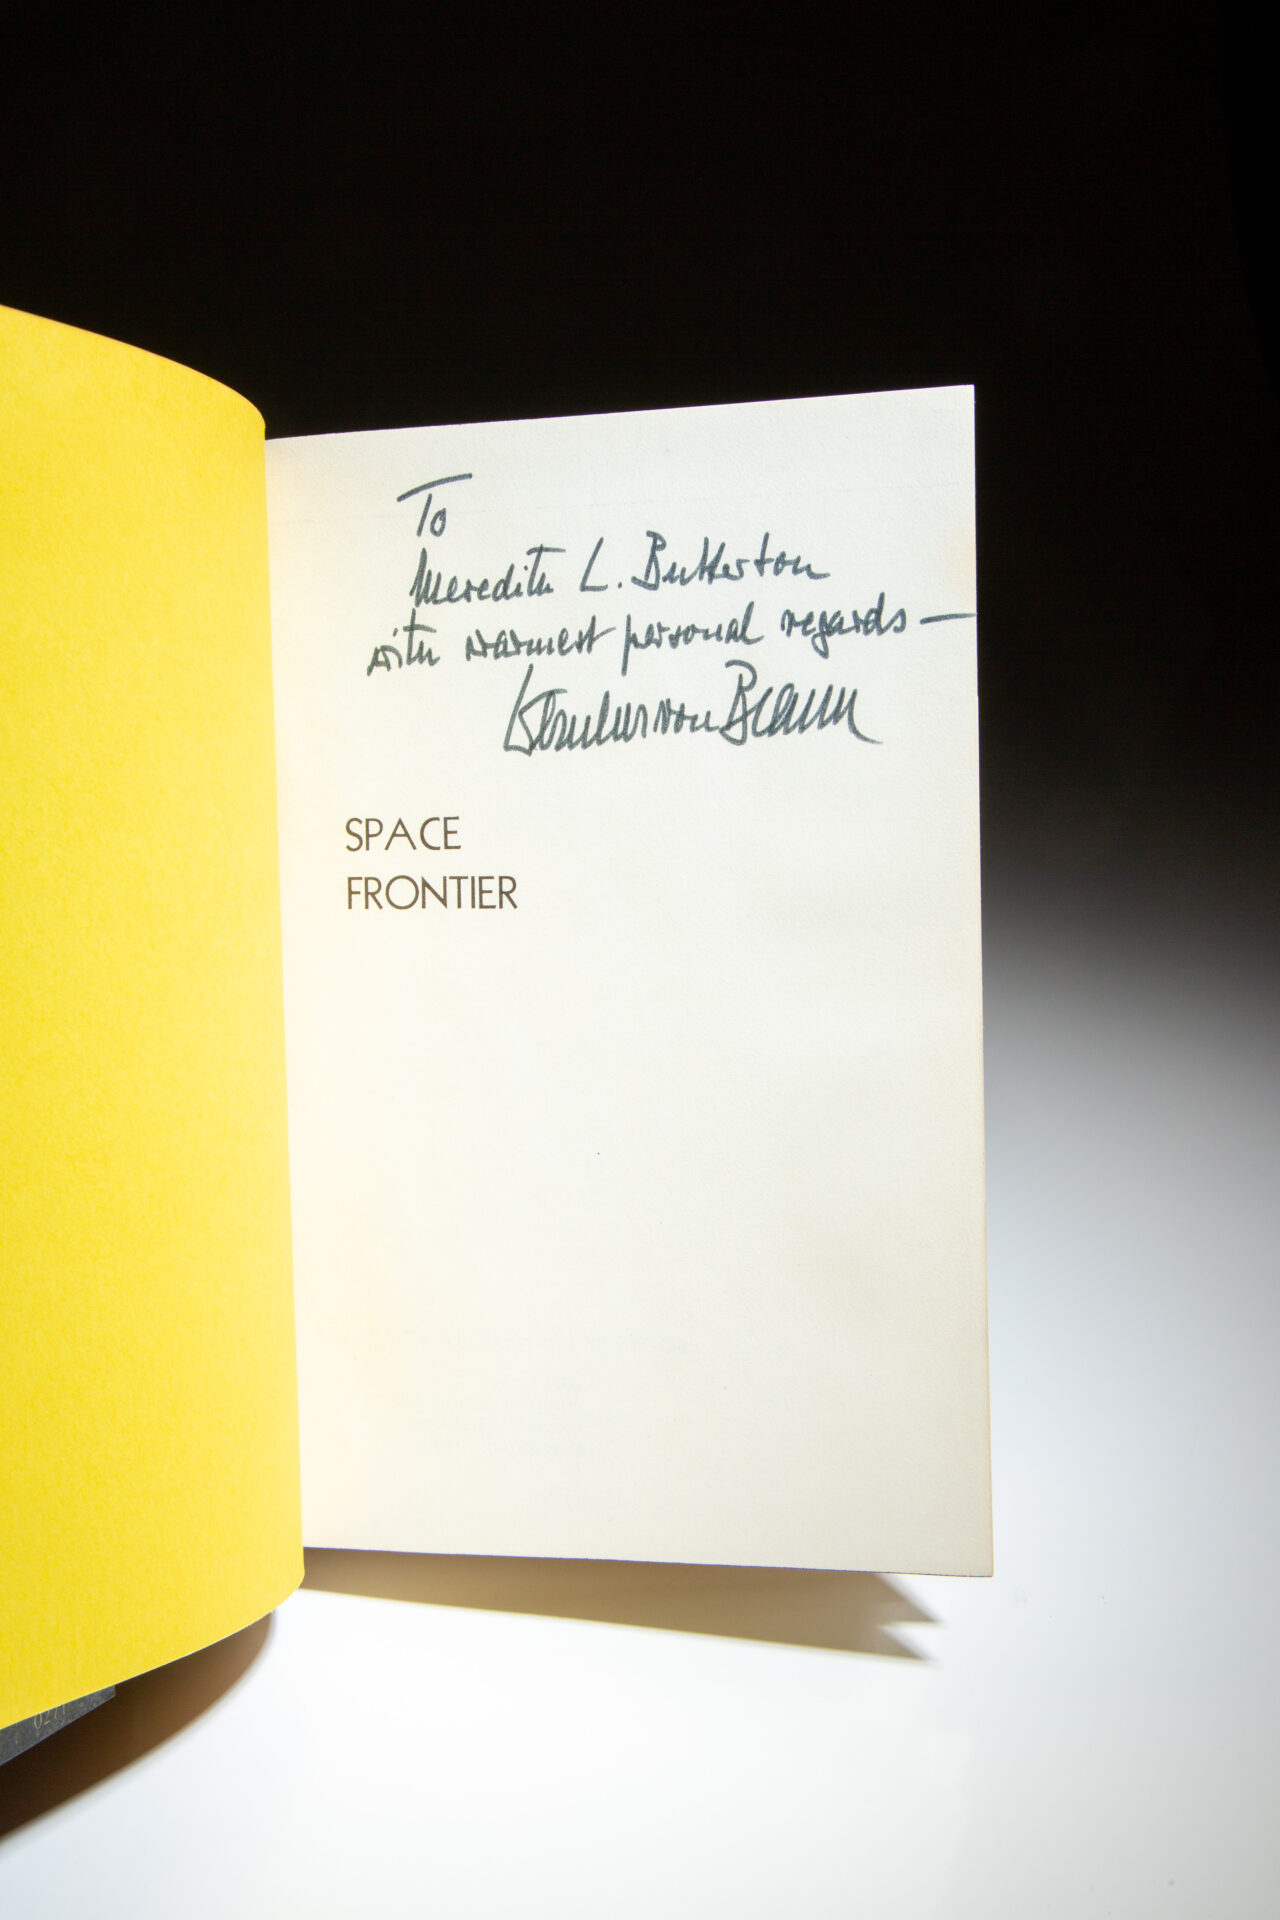 To
Meredith L. Butterton
with warmest personal regards —
Wernher von Braun
SPACE
FRONTIER